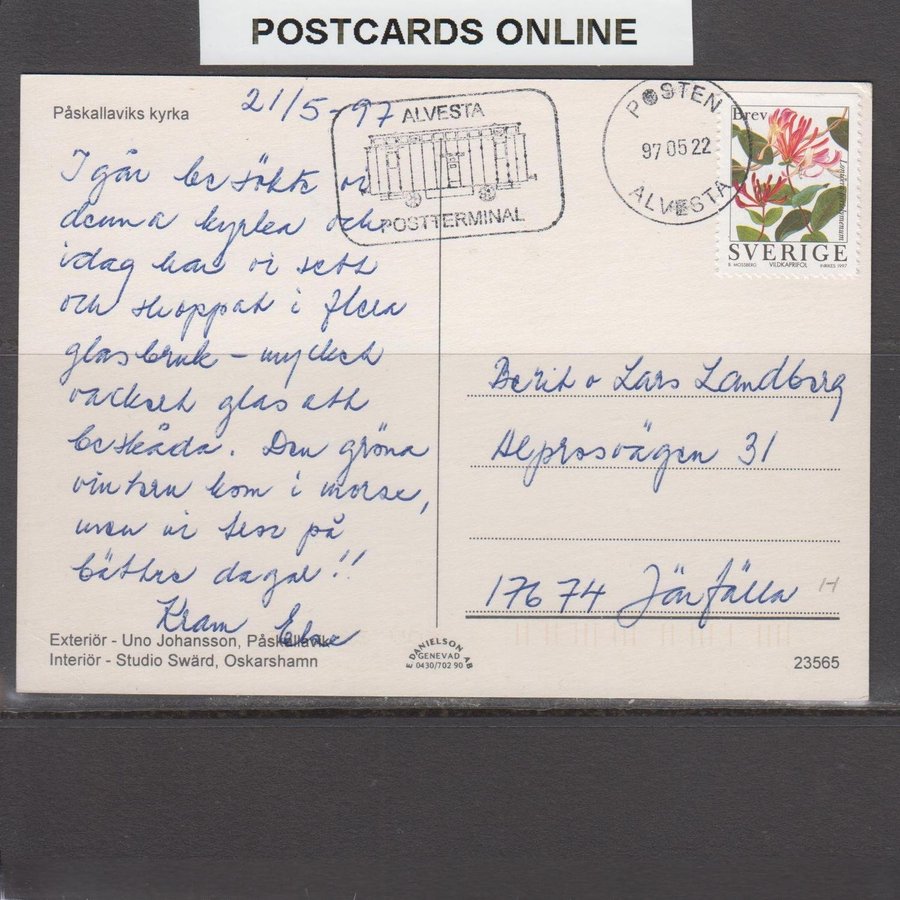 POSTCARDS ONLINE
Påskallaviks kyrka
21/5-97
I går besökte vi
denna kyrka och
idag har vi sett
och shoppat i flera
glasbruk - mycket
vackert glas att
beskåda. Den gröna
vintern kom i morse,
men vi ser på
bättre dagar!!
Kram
Exteriör - Uno Johansson, Påskallavik
Interiör - Studio Swärd, Oskarshamn
ALVESTA
POSTTERMINAL
POSTEN
97 05 22
ALVESTA
Brev
SVERIGE
B. MOSSBERG VILDKAPRIFOL 1997
Berit o Lars Landberg
Alprosvägen 31
176 74 Järfälla
E. DANIELSON AB
GENEVAD
0430/702 90
23565